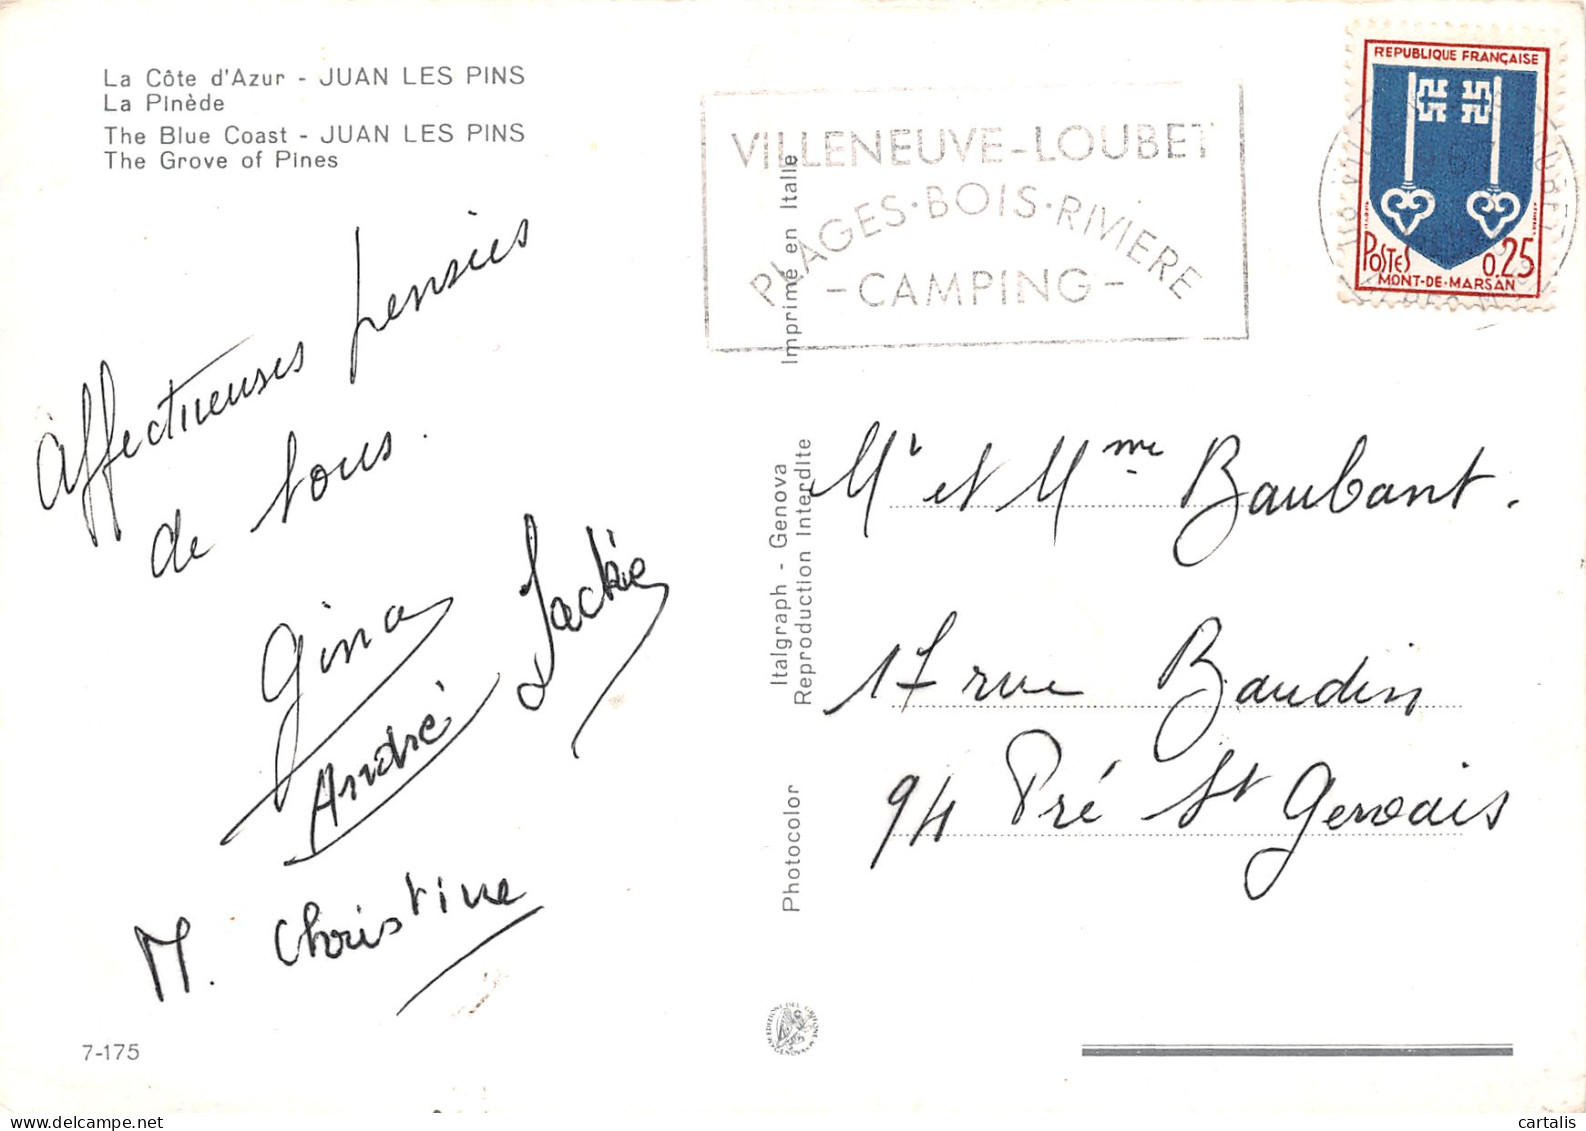 La Côte d'Azur - JUAN LES PINS
La Pinède
The Blue Coast - JUAN LES PINS
The Grove of Pines
VILLENEUVE-LOUBET
PLAGES·BOIS·RIVIERE
-CAMPING-
REPUBLIQUE FRANÇAISE
POSTES 0.25
MONT-DE-MARSAN
Affectueuses pensées
de tous.
Gina
André
Jackie
M. Christine
Imprimé en Italie
Italgraph - Genova
Reproduction Interdite
Photocolor
Mr et Mme Baubant.
17 rue Baudin
94 Pré St Gervais
EDITIONI DEL GRIFONE
GENOVA
7-175
www.delcampe.net
cartalis